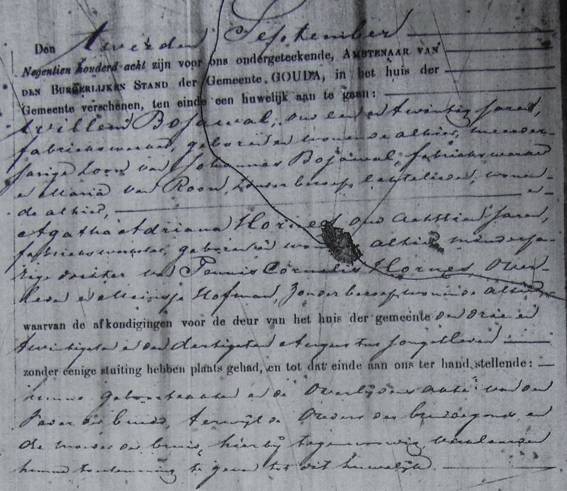 Den tweeden September
Negentien honderd acht zijn voor ons ondergeteekende, AMBTENAAR VAN
DEN BURGERLIJKEN STAND der Gemeente GOUDA, in het huis der
Gemeente verschenen, ten einde een huwelijk aan te gaan:
Willem Bojawal, oud een en twintig jaren,
fabriekswerker, geboren en wonende alhier, meerder-
jarige zoon van Johannes Bojawal, fabriekswerker
en Maria van Roon, zonder beroep, echtelieden, wonen-
de alhier, en
Agatha Adriana oud achttien jaren,
geboren en alhier, minderja-
rige dochter van Teunis Cornelis Over-
leden en Hofman, zonder beroep wonende alhier
waarvan de afkondigingen voor de deur van het huis der gemeente den drie en
twintigsten en den dertigsten Augustus jongstleden
zonder eenige stuiting hebben plaats gehad, en tot dat einde aan ons ter hand stellende:
hunne geboorteakten en de Overlijdens akte van den
Vader der bruid, terwijl de Ouders des bruidegoms en
de moeder der bruid, hierbij tegenwoordig verklaarden
hunne toestemming te geven tot dit huwelijk.